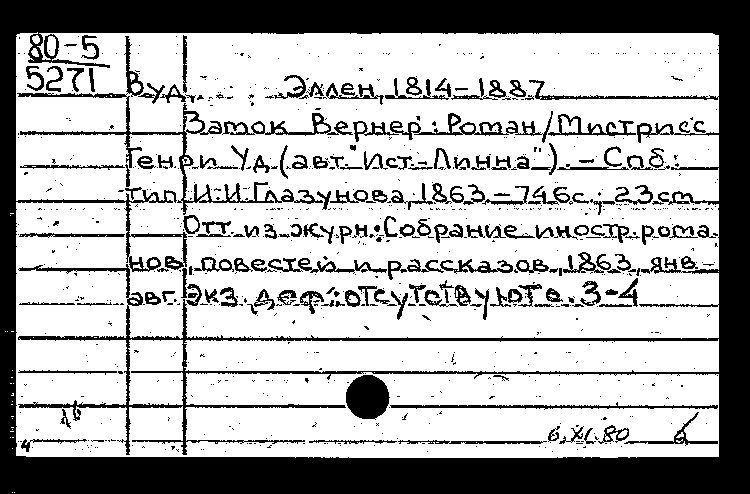 80-5
5271
Вуд, Эллен, 1814-1887
Замок Вернер: Роман/Мистрисс
Генри Уд (авт. "Ист-Линна"). - Спб.:
тип И.И.Глазунова, 1863.-746с.; 23cm
Отт. из журн.: Собрание иностр. рома-
нов, повестей и рассказов, 1863, янв-
авг. Экз. деф.: отсутствуют с. 3-4
6.XI.80
4